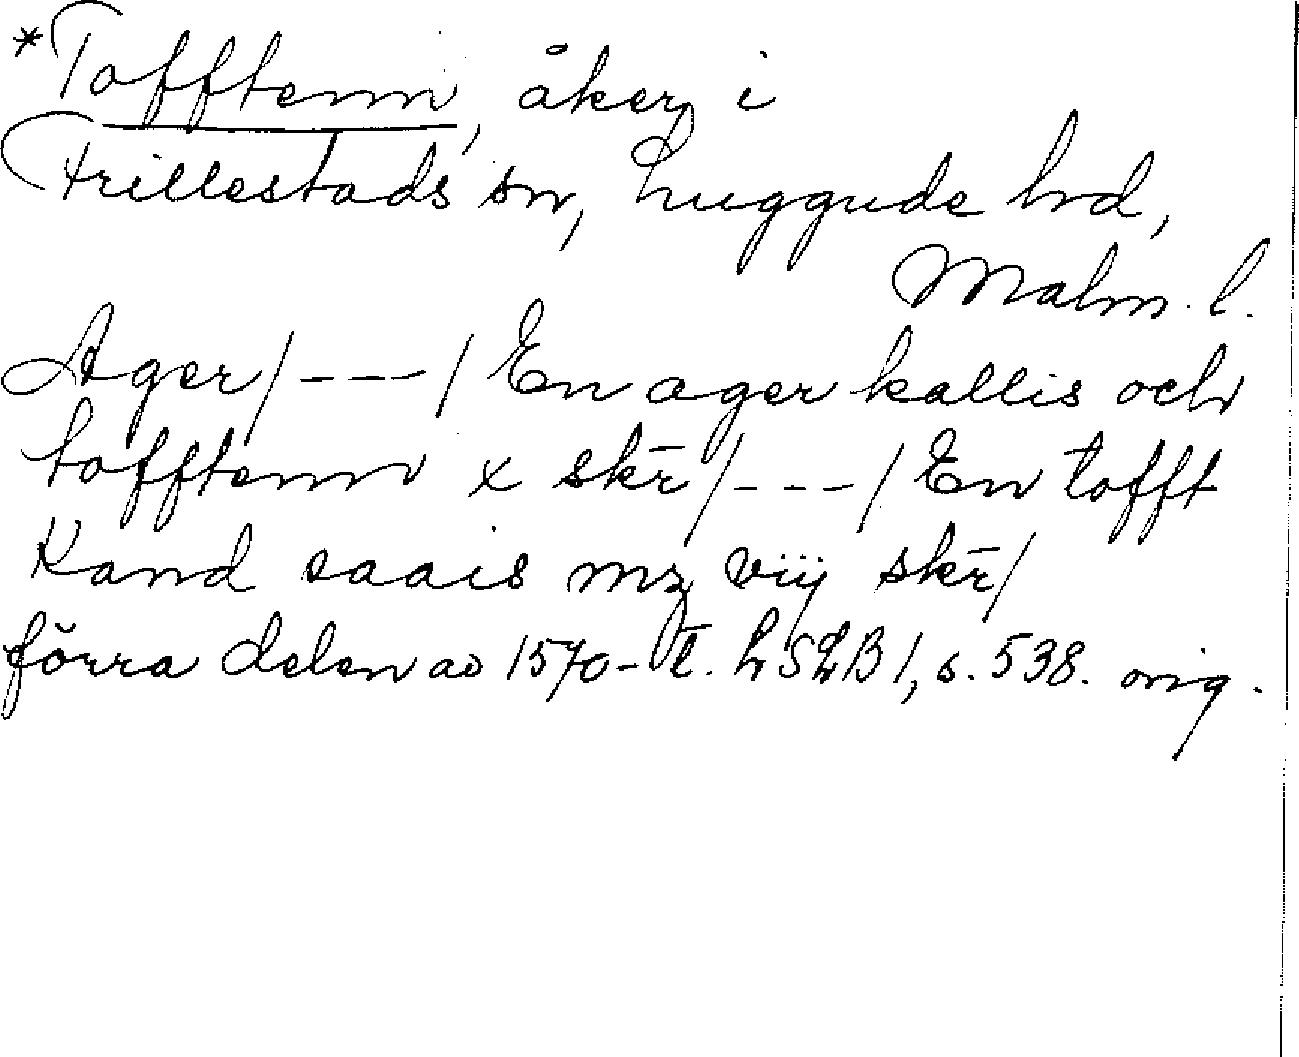 *Tofftenn, åker i
Frillestads sn, Luggude hd,
Malm. l.
Ager/---/ En ager kallis och
tofftenn x skr̄/---/ En tofft
Kand saais mz viij skr̄/
förra delen av 1570-t. LSLB 1, s. 538. orig.